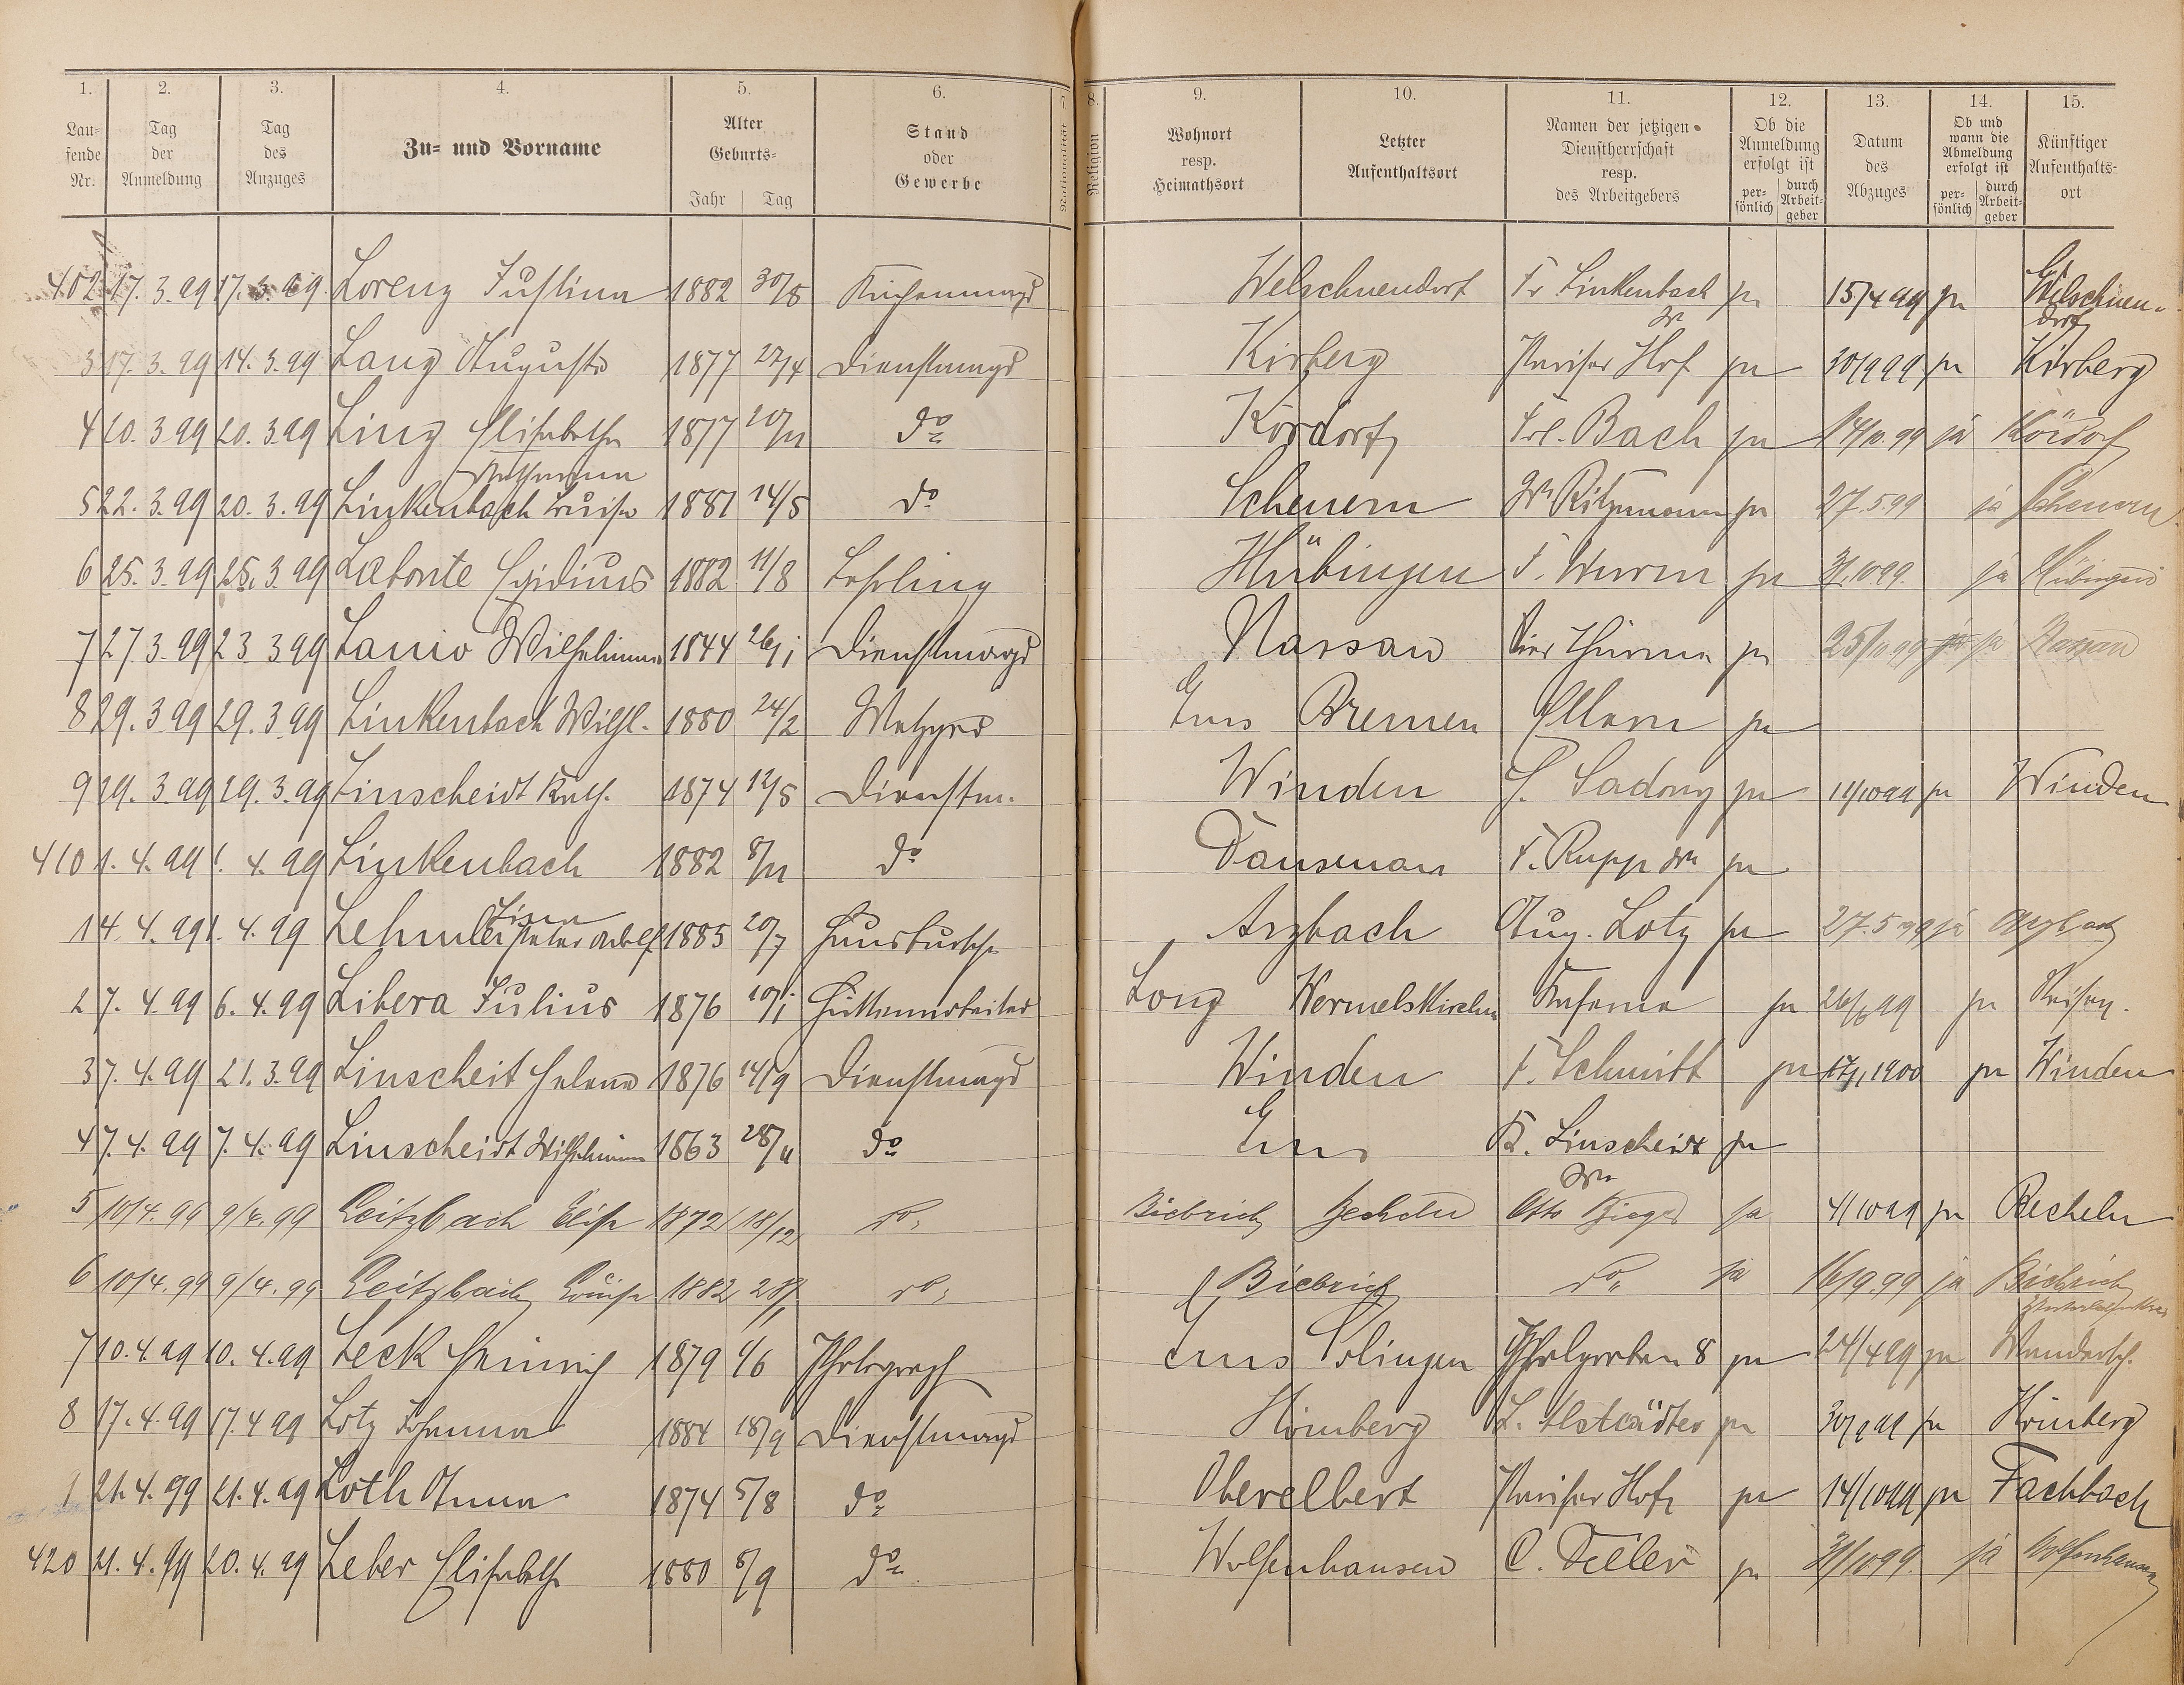 1. 2. 3. 4. 5. 6. 7. 8. 9. 10. 11. 12. 13. 14. 15.
Laufende Nr. Tag der Anmeldung Tag des Anzuges Zu- und Vorname Alter Geburts- Jahr Tag Stand oder Gewerbe Nationalität Religion Wohnort resp. Heimathsort Letzter Aufenthaltsort Namen der jetzigen Dienstherrschaft resp. des Arbeitgebers Ob die Anmeldung erfolgt ist persönlich durch Arbeitgeber Datum des Abzuges Ob und wann die Abmeldung erfolgt ist persönlich durch Arbeitgeber Künftiger Aufenthaltsort
402 17. 3. 99 17. 3. 99 Lorenz Justina 1882 30/8 Küchenmagd Welschneudorf Fr Linkenbach Ww ja 15/4 99 ja Welschneudorf
3 17. 3. 99 14. 3. 99 Lang Auguste 1877 27/4 Dienstmagd Kirberg Pariser Hof ja 30/9 99 ja Kirberg
4 20. 3 99 20. 3 99 Linz Elisabetha 1877 20/11 do Kördorf Frl. Bach ja 14/10. 99 ja Kördorf
5 22. 3. 99 20. 3. 99 Linkenbach Luise Katharina 1881 14/5 do Scheuern Ww Ritzmann ja 27. 5. 99 ja Scheuern
6 25. 3. 99 25. 3. 99 Labonte Egidius 1882 11/8 Lehrling Hübingen F. Wurm ja 31. 10 99. ja Hübingen
7 27 3. 99 23 3 99 Lanio Wilhelmina 1844 26/1 Dienstmagd Nassau Vier Thürme ja 25/11 99 ja ja Nassau
8 29. 3 99 29. 3 99 Linkenbach Wilh. 1880 24/2 Metzger Ems Bremen Eltern ja
9 29. 3. 99 29. 3. 99 Linscheidt Kath. 1874 12/5 Dienstm. Winden J. Sadony ja 11/10 99 ja Winden
410 1. 4. 99 1. 4. 99 Linkenbach Lina 1882 8/11 do Dausenau F. Rupp Ww ja
1 4. 4. 99 1. 4. 99 Lehmler Peter Adolf 1885 20/7 Hausbursche Arzbach Aug. Lotz ja 27. 5 99 ja Arzbach
2 7. 4. 99 6. 4. 99 Libera Julius 1876 10/1 Hüttenarbeiter Long Wermelskirchen Kaserne ja 26/6 99 ja Reisen.
3 7. 4. 99 21. 3. 99 Linscheit Helene 1876 14/9 Dienstmagd Winden F. Schmitt ja 17/1 1900 ja Winden
4 7. 4. 99 7. 4. 99 Linscheidt Wilhelmine 1863 28/11 do Ems K. Linscheidt Ww ja
5 10/4. 99 9/4. 99 Leitzbach Elise 1872 18/12 do Biebrich Becheln Otto ja 4/10 99 ja Becheln
6 10/4. 99 9/4. 99 Leitzbach Louise 1882 28/11 do Biebrich do ja 16/9. 99 ja Biebrich
7 10. 4. 99 10. 4. 99 Leck Heinrich 1879 4/6 Photograph Ems Solingen 8 ja 24/4 99 ja Wandersch.
8 17. 4. 99 17. 4 99 Lotz Johanna 1884 18/9 Dienstmagd Hömberg L. Altstädter ja 30/9 99 ja Hömberg
1 21. 4. 99 21. 4. 99 Loth Anna 1874 5/8 do Oberelbert Pariser Hof ja 14/10 99 ja Fachbach
420 21. 4. 99 20. 4. 99 Leber Elisabeth 1880 8/9 do Wolfenhausen C. Deeler ja 31/10 99. ja Wolfenhausen